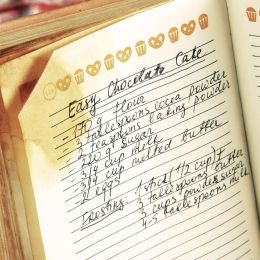 Easy Chocolate Cake
- 170 g flour
- 3 tablespoons cocoa powder
- 2 teaspoons baking powder
- 220 g sugar
- 3/4 cup milk
- 3/4 cup melted butter
- 2 eggs
Frosting: 1 stick (1/2 cup) butter
3 tablespoons
3 cups powder sugar
4-5 tablespoons milk